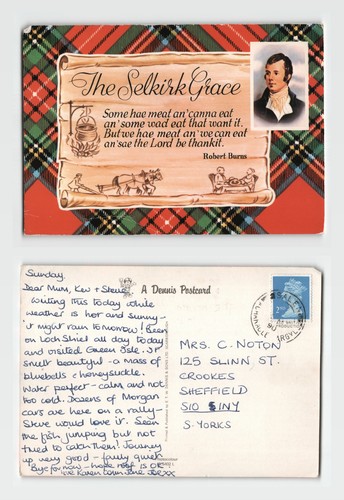 The Selkirk Grace
Some hae meat an' canna eat
an' some wad eat that want it.
But we hae meat an' we can eat
an' sae the Lord be thankit.
Robert Burns
Sunday.
Dear Mum, Kev + Steve,
Writing this today while
weather is hot and sunny -
it might rain tomorrow! Been
on Loch Shiel all day today
and visited Green Isle. It
smelt beautiful - a mass of
bluebells & honeysuckle.
Water perfect - calm and not
too cold. Dozens of Morgan
cars are here on a rally -
Steve would love it. Seen
the fish jumping but not
tried to catch them! Journey
up very good - fairly quiet
Bye for now - hope roof is OK
love Karen
A Dennis Postcard
MRS. C. NOTON
125 SLINN ST.
CROOKES
SHEFFIELD
S10 1NY
S. YORKS